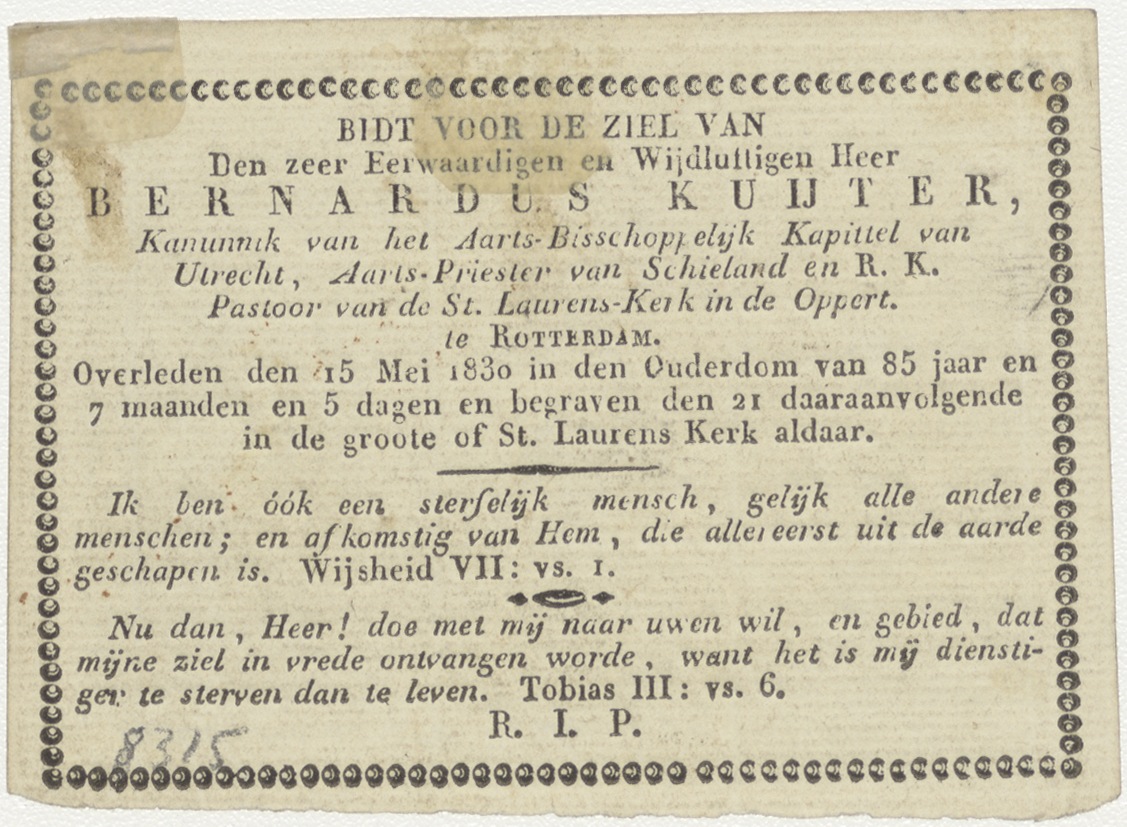 BIDT VOOR DE ZIEL VAN
Den zeer Eerwaardigen en Wijdluftigen Heer
BERNARDUS KUIJTER,
Kanunnik van het Aarts-Bisschoppelijk Kapittel van
Utrecht, Aarts-Priester van Schieland en R. K.
Pastoor van de St. Laurens-Kerk in de Oppert.
te ROTTERDAM.
Overleden den 15 Mei 1830 in den Ouderdom van 85 jaar en
7 maanden en 5 dagen en begraven den 21 daaraanvolgende
in de groote of St. Laurens Kerk aldaar.
Ik ben óók een sterfelijk mensch, gelijk alle andere
menschen; en afkomstig van Hem, die allereerst uit de aarde
geschapen is. Wijsheid VII: vs. 1.
Nu dan, Heer! doe met mij naar uwen wil, en gebied, dat
mijne ziel in vrede ontvangen worde, want het is mij diensti-
ger te sterven dan te leven. Tobias III: vs. 6.
R. I. P.
8315